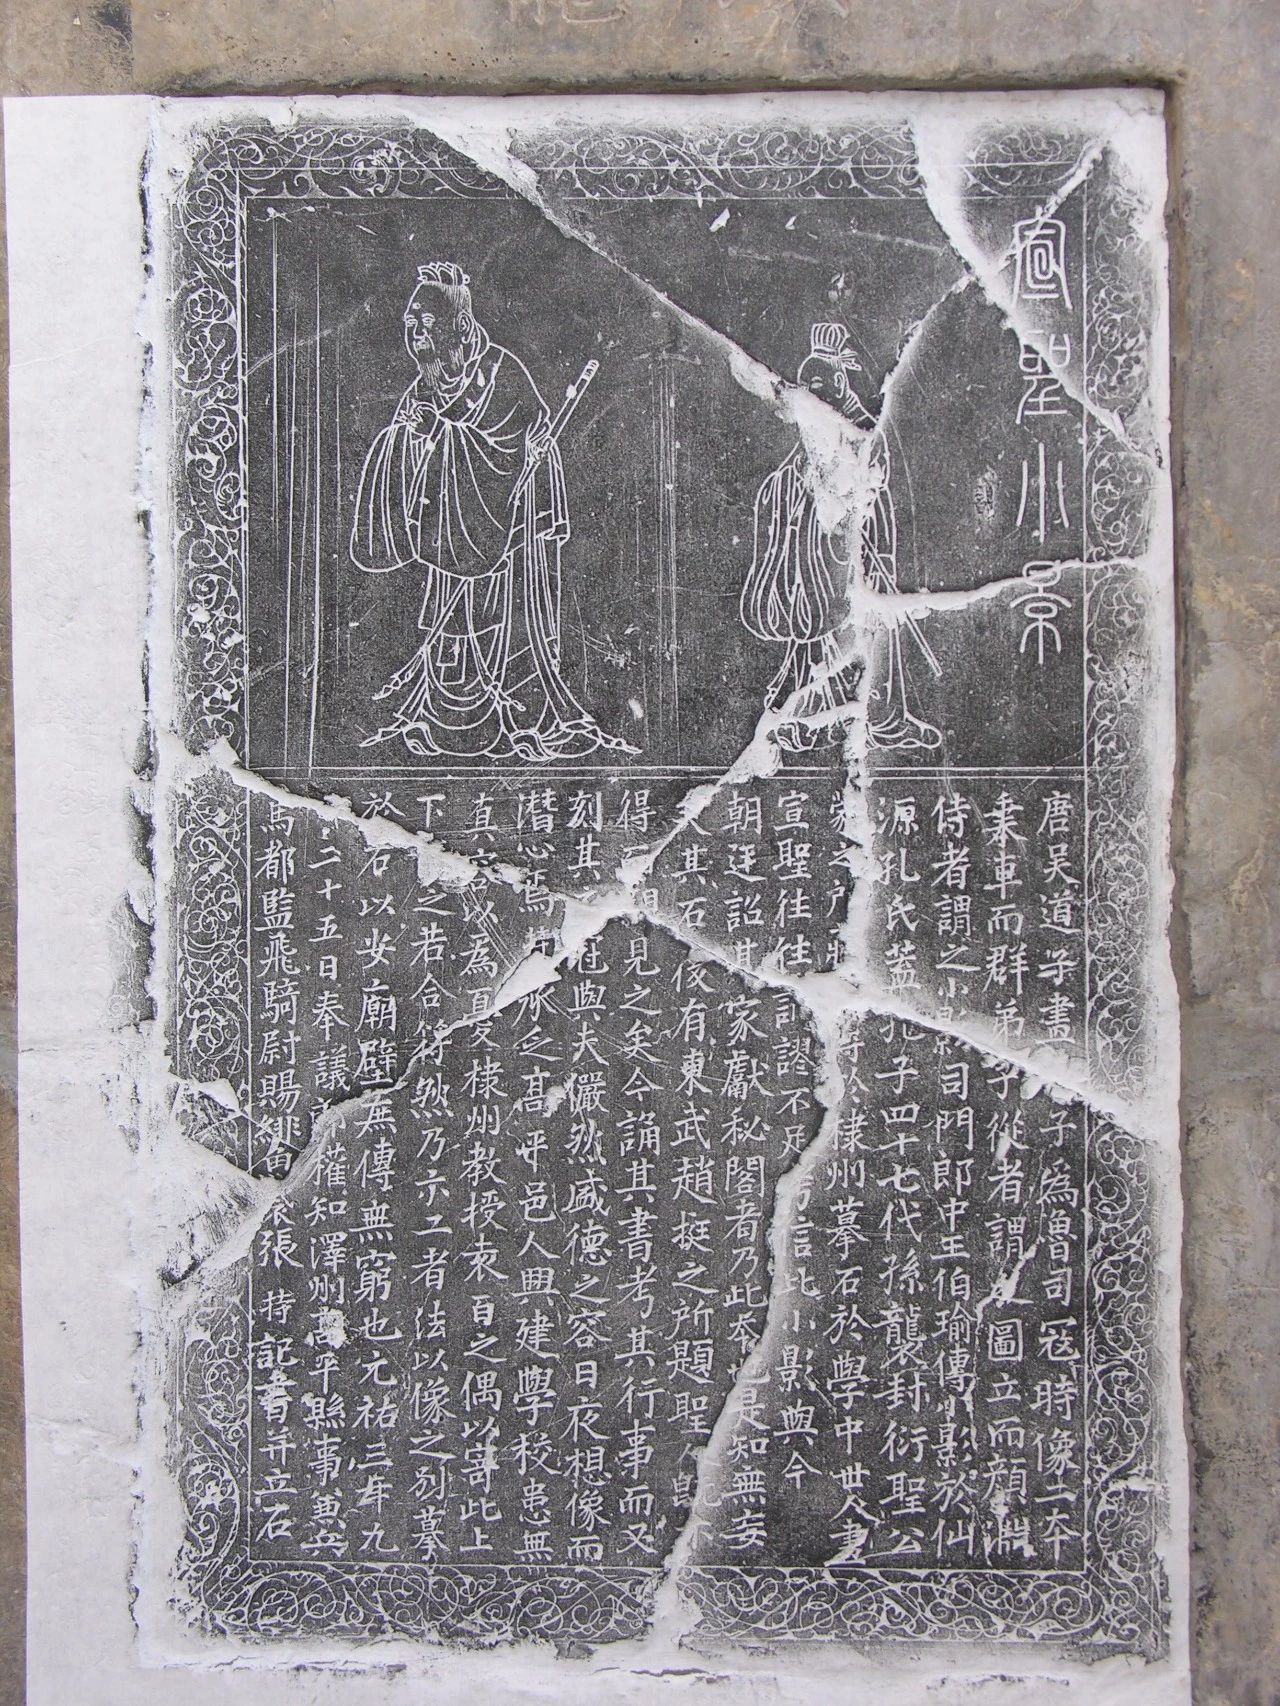 宣聖小影
唐吳道子畫 子為魯司寇時像二本
乘車而群弟子從者謂之圖立而顏淵
侍者謂之小影司門郎中王伯瑜傳小影於仙
源孔氏蓋孔子四十七代孫襲封衍聖公
之 棣州摹石於學中世人畫
宣聖往往訛謬不足 言此小影與今
朝廷詔其家獻秘閣者乃此本也是知無妄
其石後有東武趙挺之所題聖人 不
得 見之矣今誦其書考其行事而又
刻其 冠與夫儼然盛德之容日夜想像而
潛心焉 承乏高平邑人興建學校患無
真容以為憂棣州教授袁百之偶以寄此上
下 之若合符然乃示工者法以像之別摹
於石以安廟壁庶傳無窮也元祐三年九
二十五日奉議 權知澤州高平縣事兼兵
馬都監飛騎尉賜緋魚袋張 持記書并立石